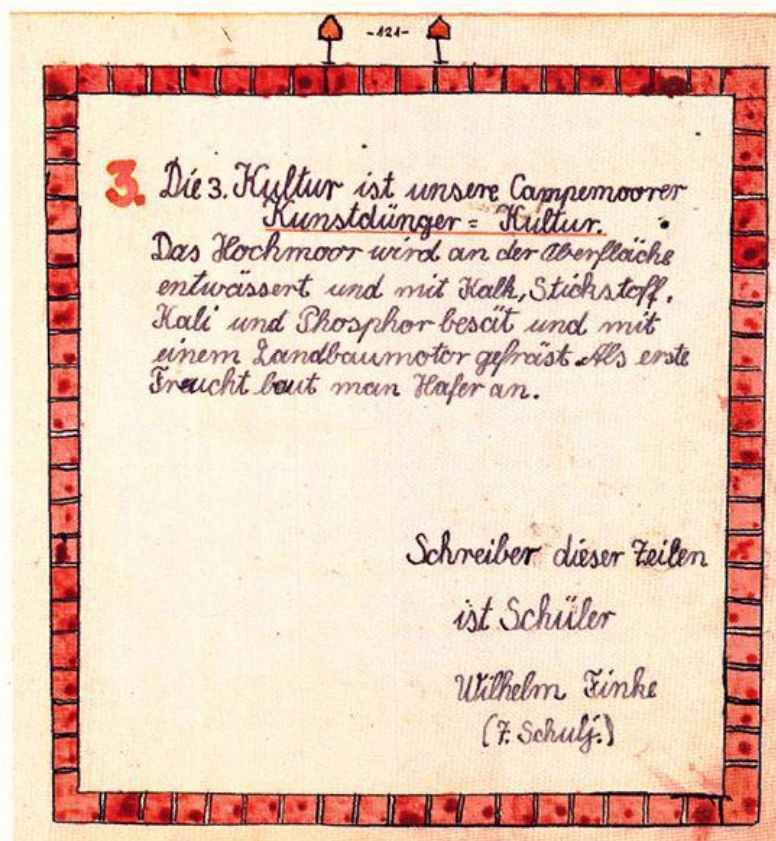 -121-
3. Die 3. Kultur ist unsere Campemoorer
Kunstdünger = Kultur.
Das Hochmoor wird an der Oberfläche
entwässert und mit Kalk, Stickstoff,
Kali und Phosphor besät und mit
einem Landbaumotor gefräst. Als erste
Freucht baut man Hafer an.
Schreiber dieser Zeilen
ist Schüler
Wilhelm Finke
(7. Schulj.)